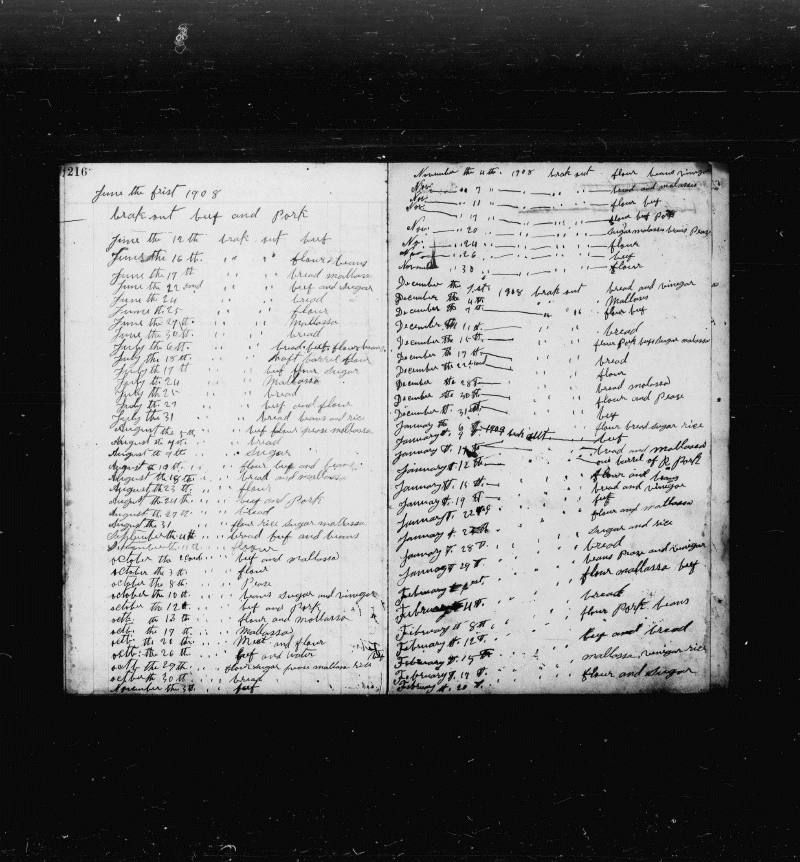 216
June the frist 1908
brak out beef and Pork
June the 12 th brak out beef
June the 16 th. " " flour & beans
June the 17 th " " bread mallassa
June the 22 cond " " beef and sugar
June th 24 " " bread
June th. 25 " " flour
June the 27 th. " " Mallassa
June the 30 th. " " bread
July the 6 th. " " bread beef flour beans
July the 18 th. " " haft barrel flour
July th 17 th " " beef flour sugar
July th. 24 " " Mallassa
July th 25 " " bread
July th. 27 " " beef and flour
July th 31 " " bread beans and rice
August the " " beef flour pease mallassa
August the " " bread
August th " " Sugar
August th 19 th. " " flour beef and beans
August the 18 th " " bread and mallassa
August th 23 th " " flour
August th 24 th " " beef and Pork
August th 27 th " " bread
August th 31 " " flour rice sugar mallassa
September the 4 th " " bread beef and beans
September the 11 th " " flour
october the 2 cond " " beef and mallassa
october the 3 th " " flour
october the 8 th. " " Pease
october the 10 th. " " beans sugar and vinegar
october the 12 th " " beef and Pork
octb. th 13 th " " flour and mallassa
octb. the 17 th " " Mallassa
octb. the 20 th " " Meat and flour
octb. the 26 th " " beef and water
octb the 29 th " " flour sugar pease mallassa rice
october th 30 th " " bread
November the 3 th " " beef
November the 4 th. 1908 brak out flour beans vinegar
Nov. " " 7 " " bread and malassas
Nov. " 11 " " flour beef
Nov. 17 " " flour beef Pork
Nov. " 20 " " sugar malassas beans Pease
Nov. " 24 " " flour
Nov. " 26 " " beef
Novem " 30 " " flour
December the 1.st. 1908 brak out bread and vinegar
December the 4 th. Mallows
December the 7 th. " " flour beef
December the 11 th. bread
December the 15 th. flour Pork beef sugar malassas
December th 17 th.
December the 22 cond bread
December the 28 th. flour
December the 30 th. bread malassa
December th. 31 th. flour and Pease
January th 6 th. beef
January th. 9 th 1909 brak out flour bread sugar rice
January th. 11 beef
January th 12 th. " " bread and mallassas
one barrel of R Pork
January th. 15 th. " " flour and beans
January th. 19 th. " " bread and vinegar
January th. 22 " " beef
flour and mallassa
January th. " " sugar and rice
January th. 28 th. " " bread
January th 29 th. " " beans Pease and vinegar
February th " " flour mallassa beef
February th 4 th. " " bread
February th 8 th. " " flour Pork beans
February th. 12 th. " " beef and bread
February th. 15 th " " mallassa, vinegar rice
February th. 17 th. " " flour and sugar
February th. 20 th.